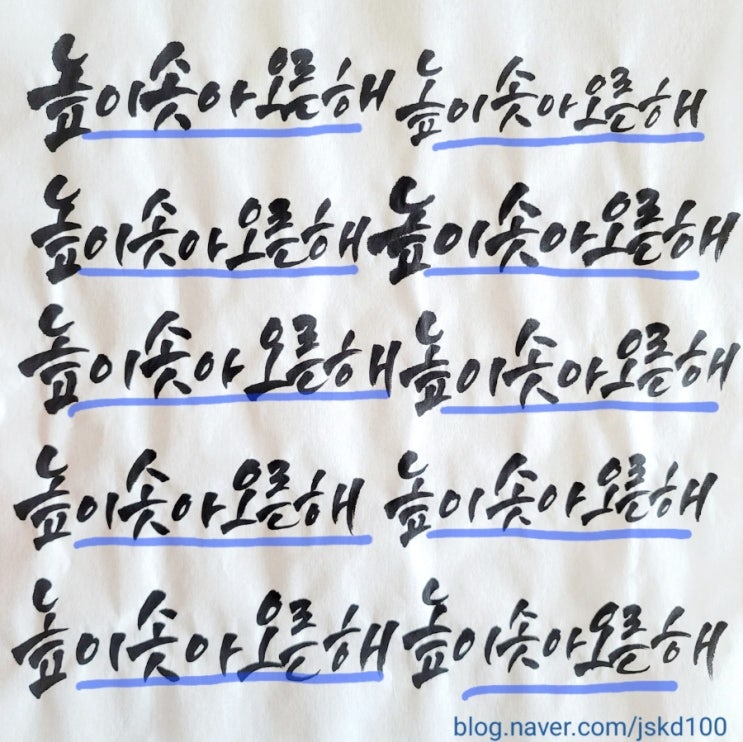 높이솟아오른해 높이솟아오른해
높이솟아오른해 높이솟아오른해
높이솟아오른해 높이솟아오른해
높이솟아오른해 높이솟아오른해
높이솟아오른해 높이솟아오른해
blog.naver.com/jskd100